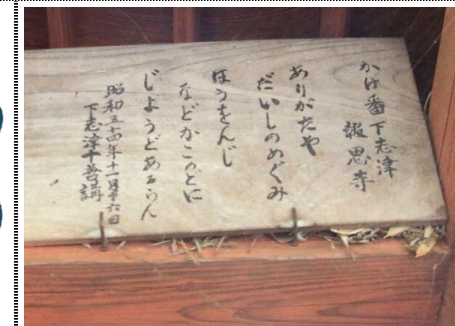 かけ番下志津
報恩寺
ありがたや
だいしのめぐみ
ほうをんじ
などかこのとに
じようどあらん
昭和五十四年十一月十六日
下志津十善講